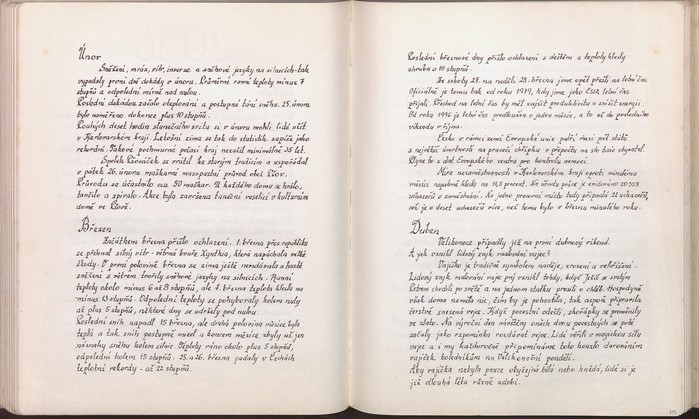 Únor
Sněžení, mráz, vítr, inverze a sněhové jazyky na silnicích - tak
vypadaly první dvě dekády v únoru. Průměrné ranní teploty minus 7
stupňů a odpolední mírně nad nulou.
Poslední dekádou začalo oteplování a postupné tání sněhu. 25. února
bylo naměřeno dokonce plus 10 stupňů.
Pouhých deset hodin slunečního svitu si v únoru mohli lidé užít
v Karlovarském kraji. Letošní zima se tak do statistik zapíše jako
rekordní. Takové pochmurné počasí kraj nezažil minimálně 35 let.
Spolek Kšováček se vrátil ke starým tradicím a uspořádal
v pátek 26. února maškarní masopustní průvod obcí Kšov.
Průvodu se účastnilo cca. 50 maškar. U každého domu se hrálo,
tančilo a zpívalo. Akce byla završena taneční veselicí v kulturním
domě ve
Březen
Začátkem března přišlo ochlazení. 1. března přes republiku
se přehnal silný vítr - větrná bouře Xynthia, která napáchala velké
škody. V první polovině března se zima ještě nevzdávala a husté
sněžení s větrem tvořily sněhové jazyky na silnicích. Ranní
teploty okolo minus 6 až 8 stupňů, ale 7. března teploty klesly na
minus 13 stupňů. Odpolední teploty se pohybovaly kolem nuly
až plus 5 stupňů, některé dny se udržely pod nulou.
Poslední sníh napadl 15. března, ale druhá polovina měsíce byla
teplá a tak sníh postupně mizel a koncem měsíce zbyly už jen
návraky sněhu kolem silnic. Teploty ráno okolo plus 5 stupňů,
odpolední kolem 15 stupňů. 25. a 26. března padaly v Čechách
teplotní rekordy - až 22 stupňů.
Poslední březnové dny přišlo ochlazení s deštěm a teploty klesly
zhruba o 10 stupňů.
Ze soboty 27. na neděli 28. března jsme opět přešli na letní čas.
Oficiálně je tomu tak od roku 1979, kdy jsme jako ČSSR letní čas
přijali. Přechod na letní čas by měl zvýšit produktivitu a snížit energii.
Od roku 1996 je letní čas prodloužen o jeden měsíc, a to až do posledního
víkendu v říjnu.
Česko v rámci zemí Evropské unie patří mezi pět států
s největší úmrtností na prasečí chřipku v přepočtu na sto tisíc obyvatel.
Plyne to z dat Evropského centra pro kontrolu nemocí.
Míra nezaměstnanosti v Karlovarském kraji oproti minulému
měsíci nepatrně klesla na 11,5 procent. Na úřady práce je evidováno 20 558
uchazečů o zaměstnání. Na jedno pracovní místo tedy připadá 22 uchazečů,
což je o deset uchazečů více, než tomu bylo v březnu minulého roku.
Duben
Velikonoce připadly již na první dubnový víkend.
A jak vznikl lidový zvyk malování vajec?
Vajíčko je tradičně symbolem naděje, zrození a vzkříšení.
Lidový zvyk malování vajec prý vznikl tehdy, když Ježíš se svatým
Petrem chodili po světě a na jednom statku prosili o chléb. Hospodyně
však doma neměla nic, čím by je pohostila, tak aspoň připravila
čerstvě snesená vejce. Když pocestní odešli, skořápky se proměnily
ve zlato. Na výročí den návštěvy oněch dvou pocestných se poté
začaly jako vzpomínka rozdávat vejce. Lidé věřili v magickou sílu
vejce a i my každoročně připomínáme toto kouzlo darováním
vajíček koledníkům na Velikonoční pondělí.
Aby vajíčka nebyla pouze obyčejná bílá nebo hnědá, lidé si je
již dlouhá léta různě zdobí.